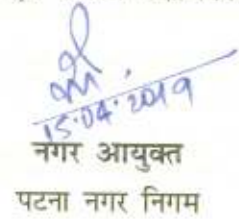 15.04.2019
नगर आयुक्त
पटना नगर निगम